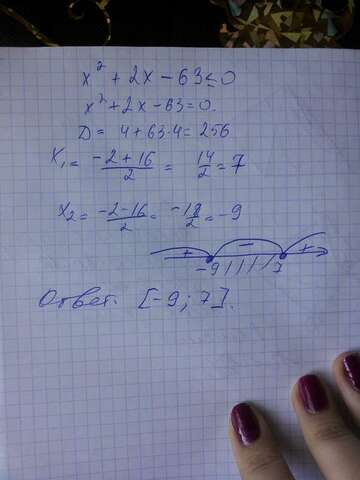 x² + 2x − 63 ≤ 0
x² + 2x − 63 = 0.
D = 4 + 63·4 = 256
X₁ = (−2 + 16)/2 = 14/2 = 7
X₂ = (−2 − 16)/2 = −18/2 = −9
+ − +
−9 7
Ответ. [−9; 7].